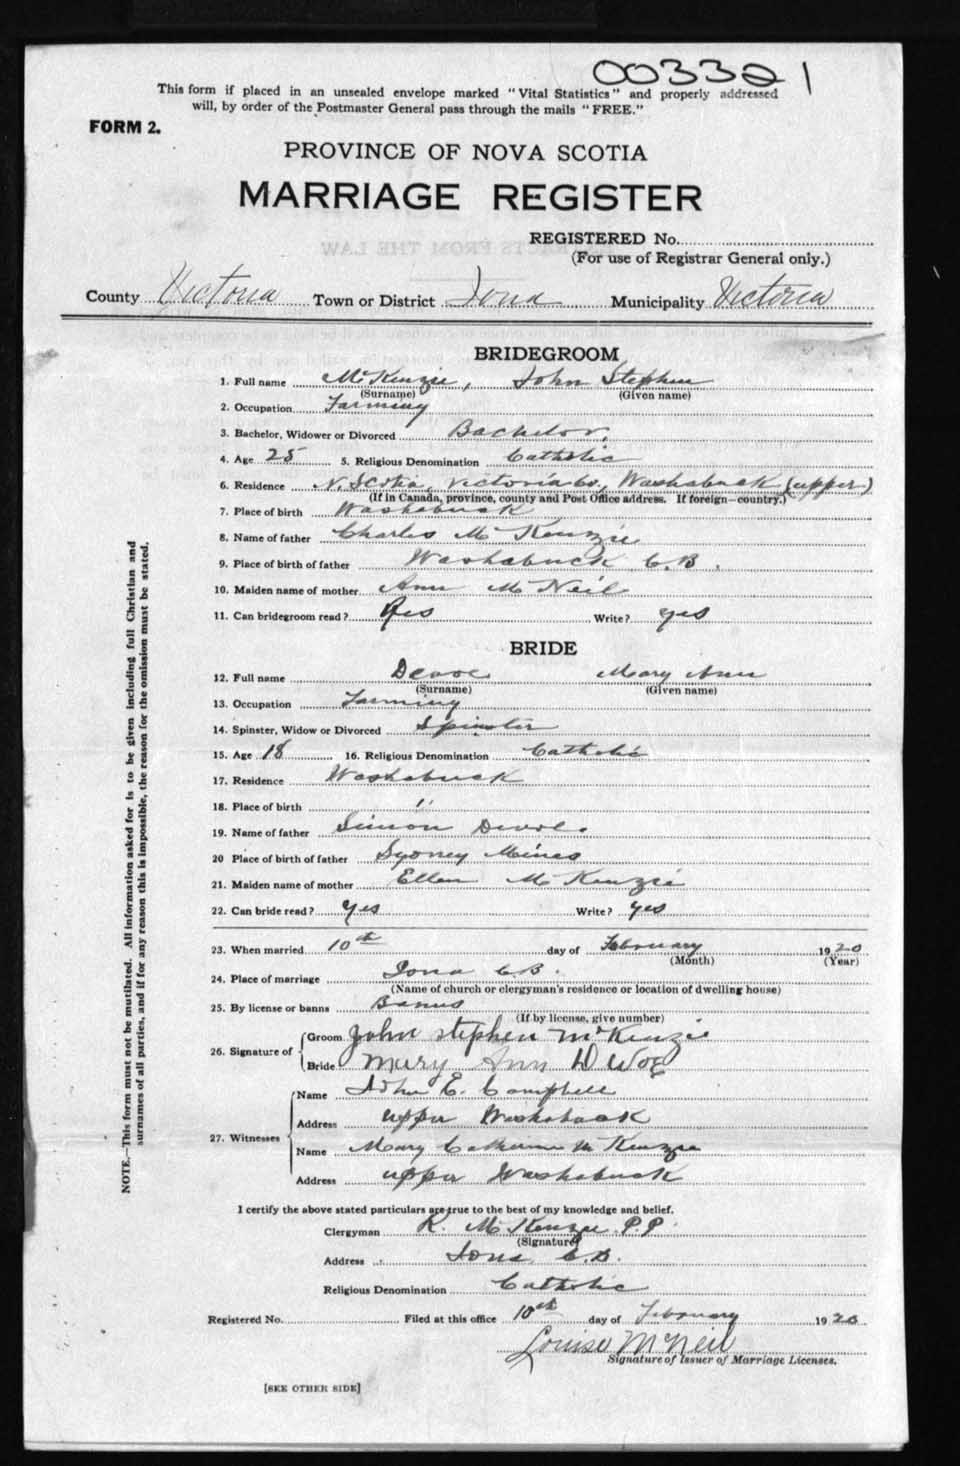 003321
This form if placed in an unsealed envelope marked "Vital Statistics" and properly addressed
will, by order of the Postmaster General pass through the mails "FREE."
FORM 2.
PROVINCE OF NOVA SCOTIA
MARRIAGE REGISTER
REGISTERED No.
(For use of Registrar General only.)
County Victoria Town or District Iona Municipality Victoria
BRIDEGROOM
1. Full name McKenzie, John Stephen
(Surname) (Given name)
2. Occupation Farming
3. Bachelor, Widower or Divorced Bachelor,
4. Age 25 5. Religious Denomination Catholic
6. Residence N. Scotia, Victoria Co., Washabuck (upper)
(If in Canada, province, county and Post Office address. If foreign—country.)
7. Place of birth Washabuck
8. Name of father Charles McKenzie
9. Place of birth of father Washabuck C.B.
10. Maiden name of mother Ann McNeil
11. Can bridegroom read? Yes Write? yes
BRIDE
12. Full name Devoe Mary Ann
(Surname) (Given name)
13. Occupation Farming
14. Spinster, Widow or Divorced Spinster
15. Age 18 16. Religious Denomination Catholic
17. Residence Washabuck
18. Place of birth "
19. Name of father Simon Devoe.
20 Place of birth of father Sydney Mines
21. Maiden name of mother Ellen McKenzie
22. Can bride read? yes Write? yes
23. When married 10th day of February 1920
(Month) (Year)
24. Place of marriage Iona C.B.
(Name of church or clergyman's residence or location of dwelling house)
25. By license or banns Banns
(If by license, give number)
26. Signature of Groom John Stephen McKenzie
Bride Mary Ann DeVoe
27. Witnesses Name John E. Campbell
Address upper Washaback
Name Mary Catherine McKenzie
Address upper Washabuck
I certify the above stated particulars are true to the best of my knowledge and belief.
Clergyman R. McKenzie P.P.
(Signature)
Address Iona C.B.
Religious Denomination Catholic
Registered No. Filed at this office 10th day of February 1920
Louise McNeil
Signature of Issuer of Marriage Licenses.
[SEE OTHER SIDE]
NOTE.—This form must not be mutilated. All information asked for is to be given including full Christian and
surnames of all parties, and if for any reason this is impossible, the reason for the omission must be stated.